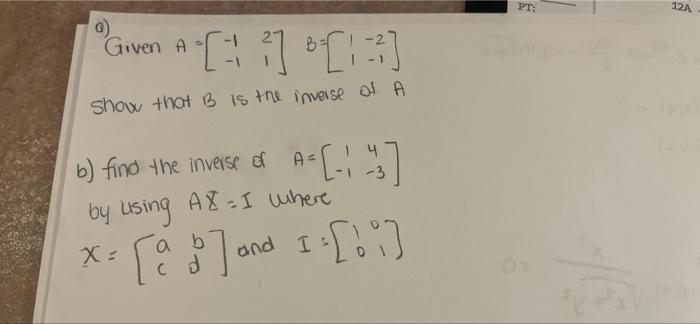 PT:
12A
a)
Given A = [ -1 2 B = [ 1 -2
-1 1 ] 1 -1 ]
show that B is the inverse of A
b) find the inverse of A = [ 1 4
-1 -3 ]
by using AX = I where
X = [ a b and I = [ 1 0
c d ] 0 1 ]